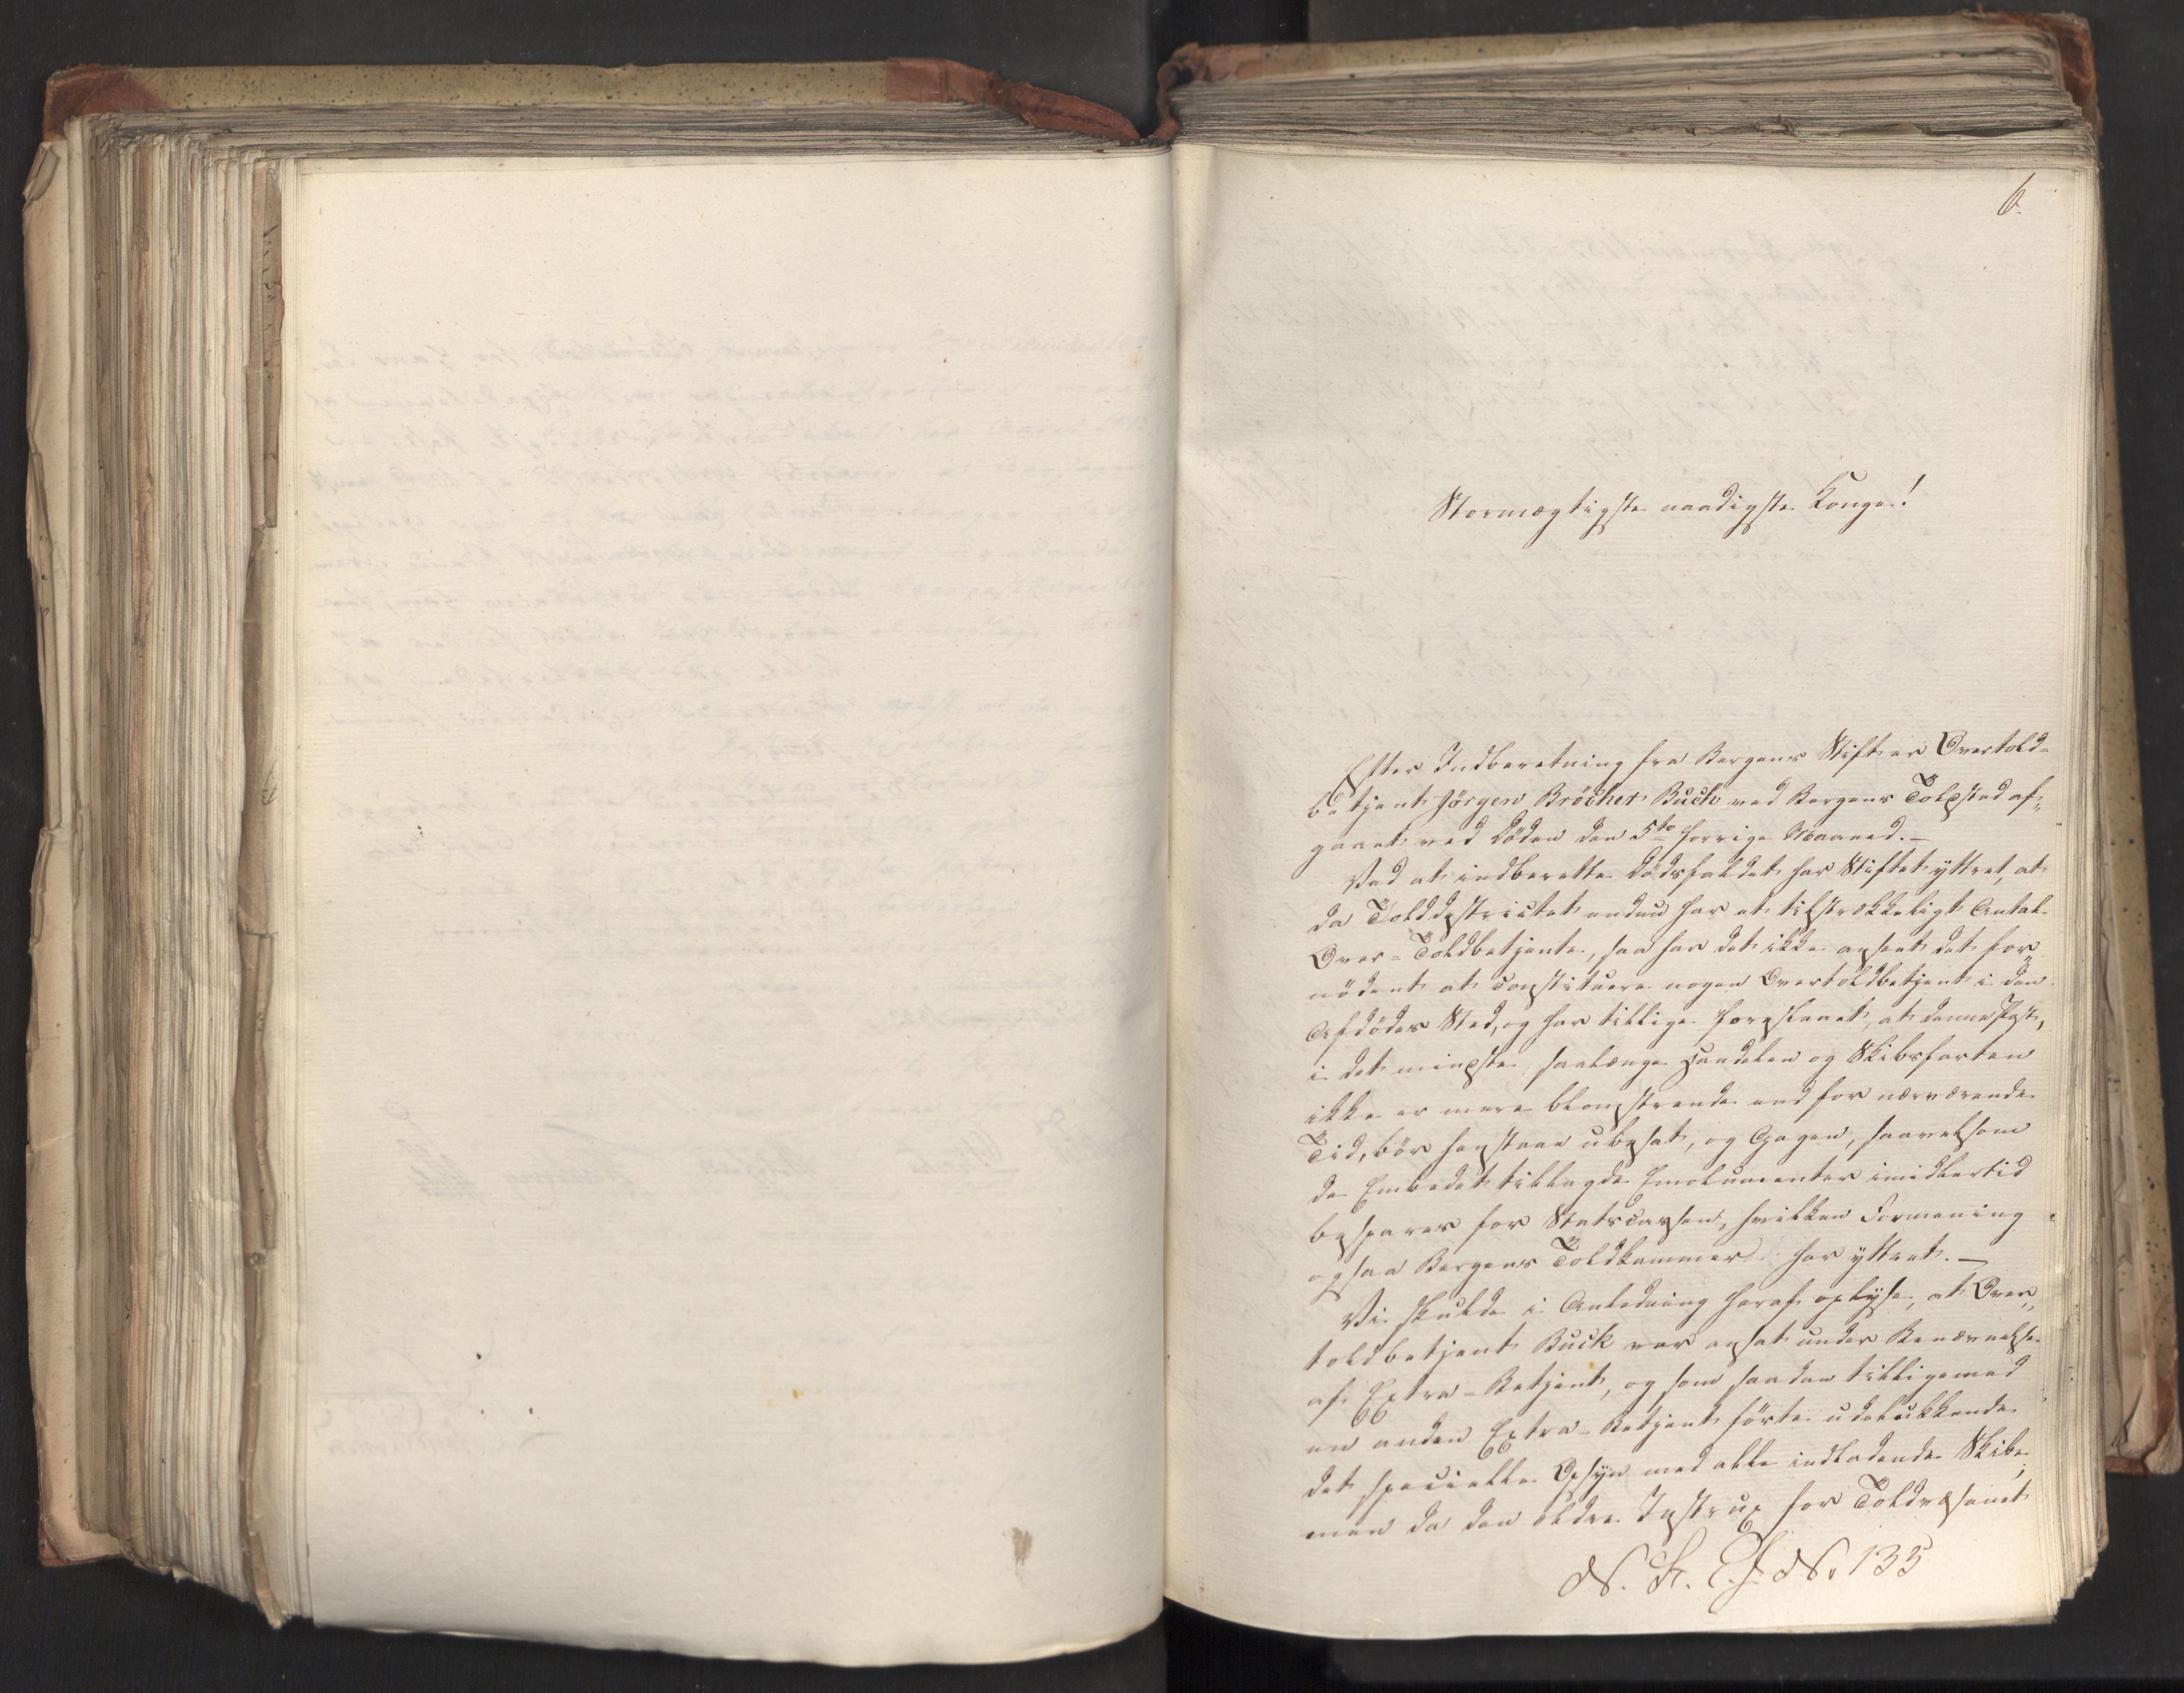 6.
Stormægtigste naadigste Konge!
Efter Indberetning fra Bergens Stift er Overtold-
betjent Jörgen Bröcher Buck ved Bergens Toldsted af-
gaaet ved Döden den 5te forrige Maaned.—
Ved at indberette Dödsfaldet har Stiftet yttret, at
da Tolddistrictet endnu har et tilstrækkeligt Antal
Over-Toldbetjente, saa har det ikke anseet det for-
nödent at constituere nogen Overtoldbetjent i den
Afdödes Sted, og har tillige foreslaaet, at denne Post,
i det mindste saalænge Handelen og Skibsfarten
ikke er mere blomstrende end for nærværende
Tid, bör henstaae ubesat, og Gagen, saavelsom
de Embedet tillagde Emolumenter imidlertid
bespares for Statscassen, hvilken Formening
ogsaa Bergens Toldkammer har yttret.—
Vi skulde i Anledning heraf oplyse, at Over-
toldbetjent Buck var ansat under Benævnelse
af Extra-Betjent, og som saadan tilligemed
en anden Extra-Betjent förte udelukkende
det specielle Opsyn med alle indladende Skibe;
men da den ældre Instrux for Toldvæsenet
N. R. C. J. No 135